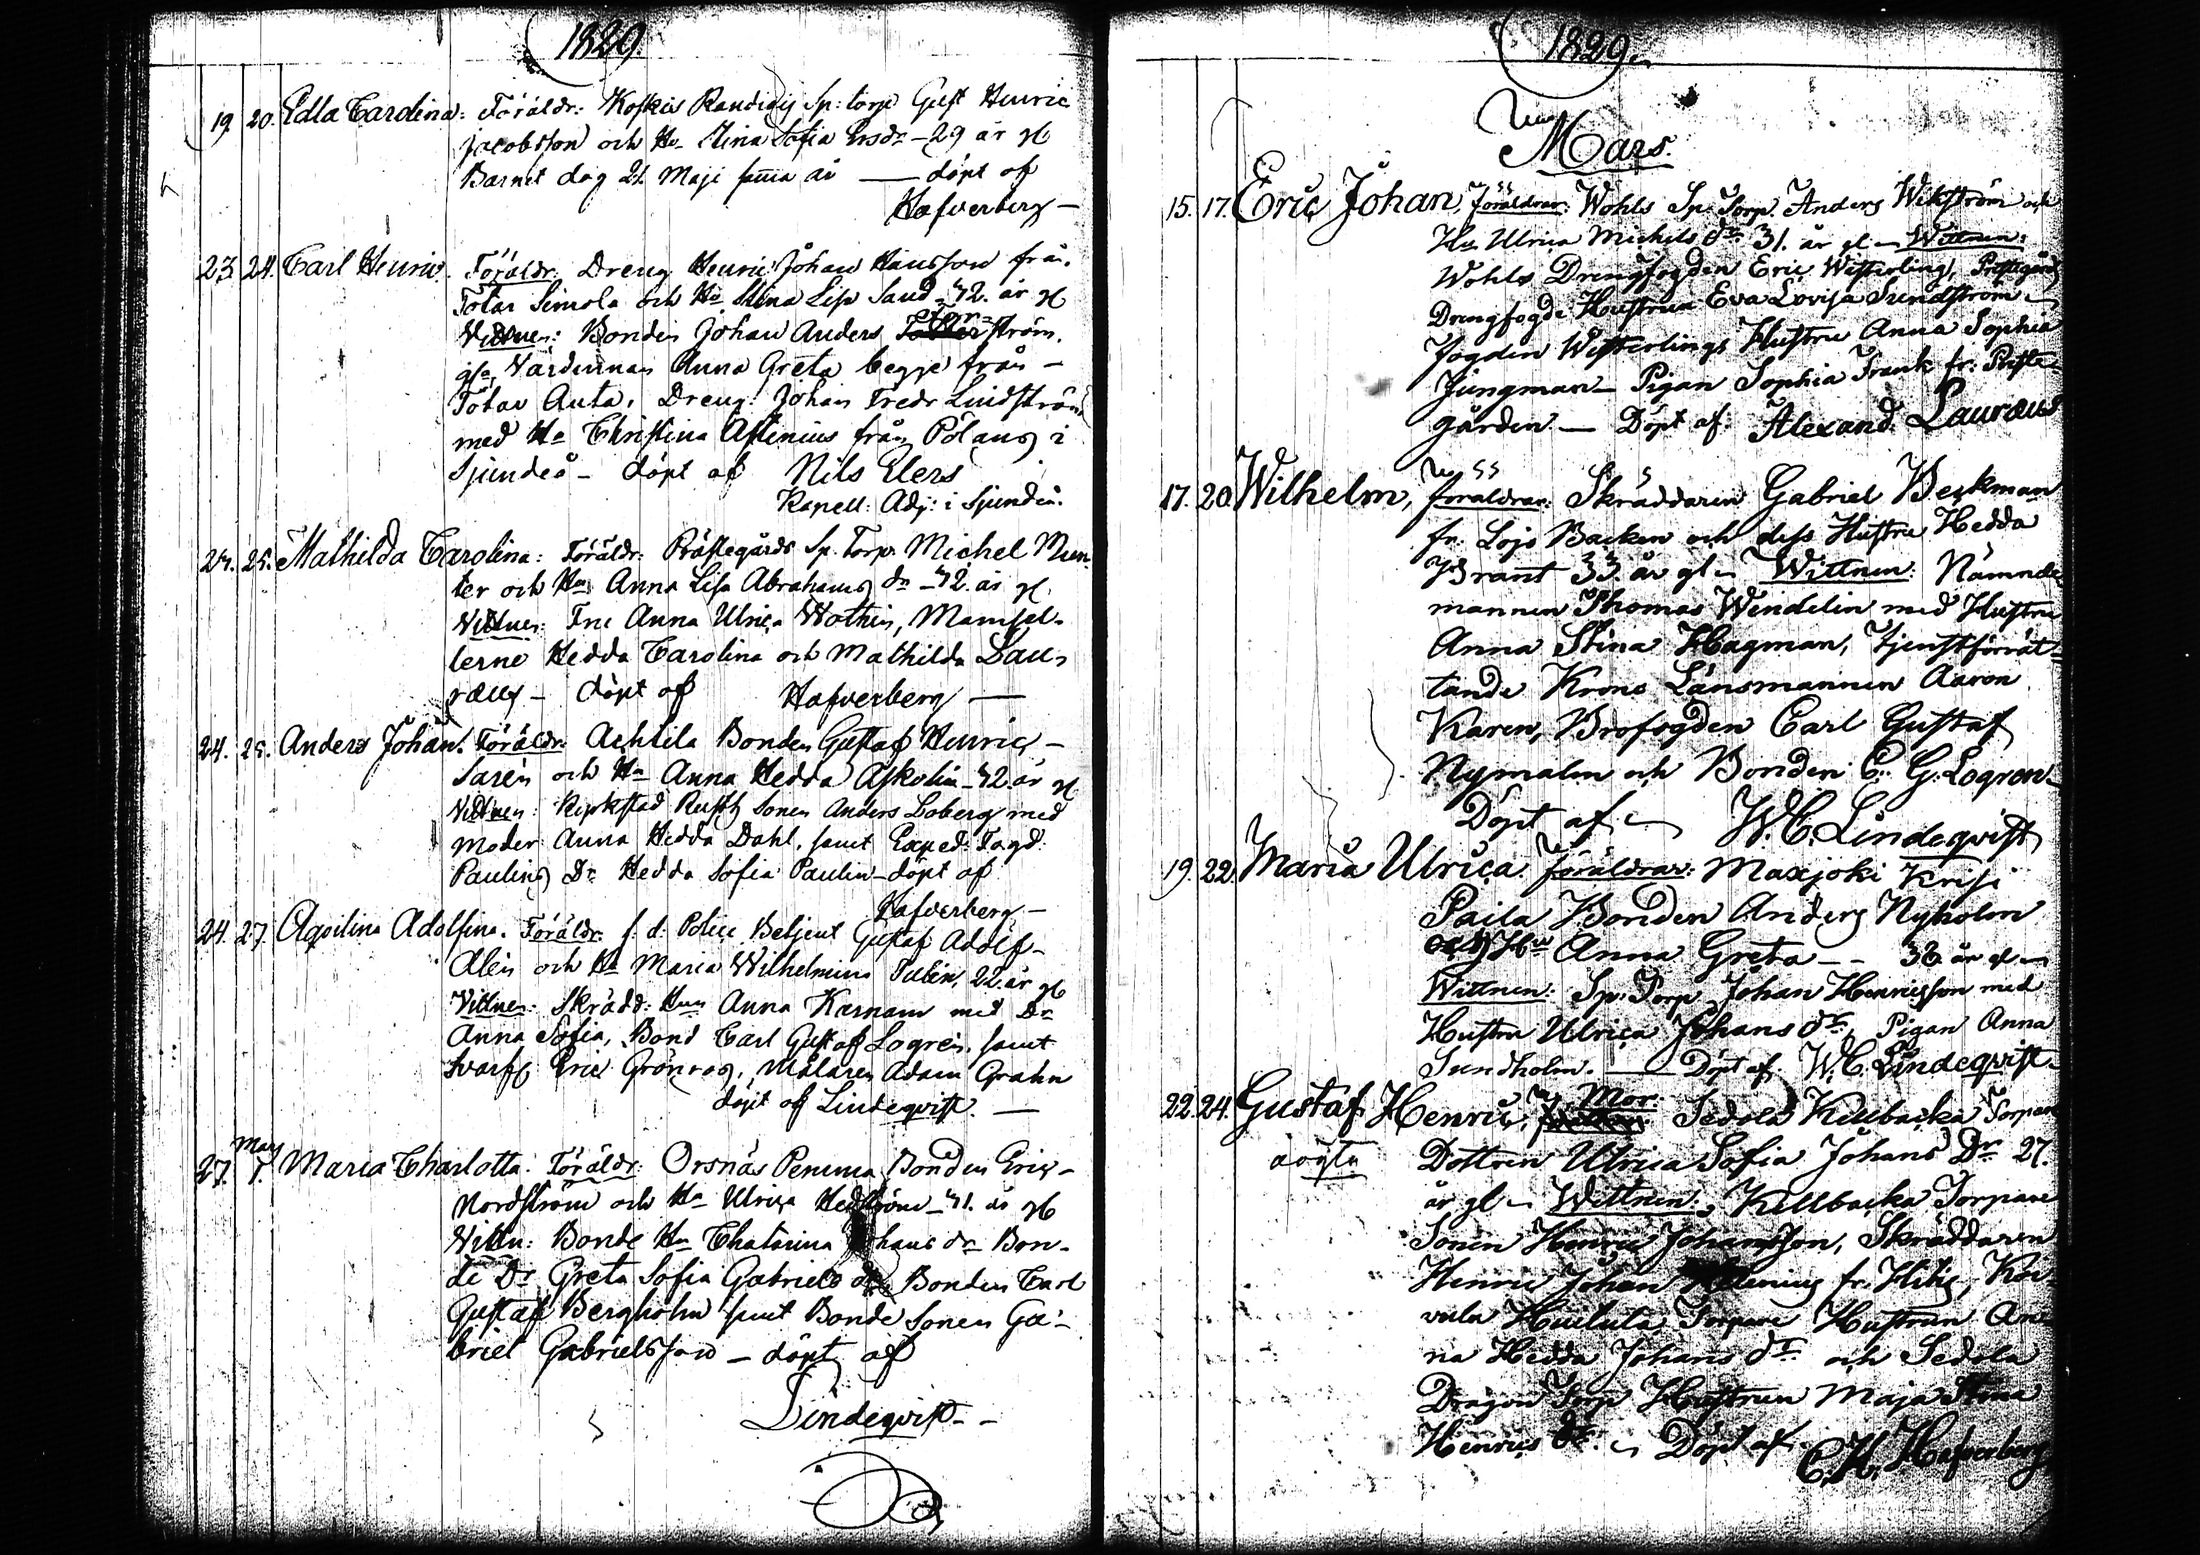 1829.
19. 20. Edla Carolina: Föräldr: Koskis Sp: torp Gust Henric
Jacobsson och Hu Stina Sofia Ersdr - 29 år gl
Barnet dog 21. Maji sama år — döpt af
Hafverberg —
23. 24. Carl Henric. Föräldr: Dreng Henric Johan Hansson från
Totar Simola och Hu Stina Lisa Sand - 42. år gl
Vittnen: Bonden Johan Anders ström.
Värdinnan Anna Greta begge från -
Totar Anta, Dreng: Johan Fredr Lindström
med Hu Christina Astenius från Pölans i
Sjundeå - döpt af Nils Elers
Kapell: Adj: i Sjundeå.
24. 25. Mathilda Carolina: Föräldr: Prästegårds Sp. Torp. Michel Mun-
ter och Hu Anna Lisa Abrahams dr - 42. år gl
Vittnen: Fru Anna Ulrica Wothin, Mamsel-
lerne Hedda Carolina och Mathilda Lau-
ræus - döpt af Hafverberg —
24. 25. Anders Johan. Föräldr: Achtila Bonden Gustaf Henric -
Sarén och Hu Anna Hedda Askolin - 42. år gl
Vittnen: Sonen Anders Loberg med
Moder Anna Hedda Dahl, samt Exped: Fogd.
Paulins Dr Hedda Sofia Paulin - döpt af
Hafverberg -
24. 27. Aqvilina Adolfina. Föräldr: f. d. Police Betjent Gustaf Adolf -
Alén och Hu Maria Wilhelmina Tulén, 22. år gl
Vittnen: Skrädd: Hun Anna Karnam med Dr
Anna Sofia, Bond Carl Gustaf Logrén, samt
Svarf: Eric Grönroos, Målaren Adam Grahn
döpt af Lindeqvist. —
27. Mars 1. Maria Charlotta. Föräldr: Orsnäs Pemma Bonden Eric -
Nordström och Hu Ulrica Hedström - 41. år gl
Vittn: Bonde Hu Chatarina Johans dr Bon-
de Dr Greta Sofia Gabriels dr Bonden Carl
Gustaf Bergholm samt Bonde Sonen Ga-
briel Gabrielsson - döpt af
Lindeqvist - -
1829.
Mars.
15. 17. Eric Johan, Föräldrar: Wohls Sp. Torp. Anders Wikström och
Hu Ulrica Michels dr 31. år gl - Wittnen:
Wohls Drengfogden Eric Wisterling, Prestegårds
Drengfogde Hustrun Eva Lovisa Sundström
Fogden Wisterlings Hustru Anna Sophia
Jungman - Pigan Sophia Frank fr: Preste-
gården — Döpt af: Alexand. Lauræus
17. 20. Wilhelm, föräldrar: Skräddaren Gabriel Beckman
fr. Lojo Backen och dess Hustru Hedda
Brant 33. år gl - Wittnen: Nämnde-
mannen Thomas Wendelin med Hustru
Anna Stina Hagman, Tjenstförrät-
tande Krono Länsmannen Aaron
Karen, Brofogden Carl Gustaf
Nymalm och Bonden C. G. Logren -
Döpt af W. C. Lindeqvist
19. 22. Maria Ulrica. föräldrar: Maxjoki Krisi
Paila Bonden Anders Nyholm
och Hu Anna Greta - - 36 år gl -
Wittnen: Sp: Torp Johan Henricsson med
Hustru Ulrica Johans dr, Pigan Anna
Sundholm. — Döpt af W. C. Lindeqvist -
22. 24. Gustaf Henric, Mor: Sedola Killbacka Torpare
oägta Dottren Ulrica Sofia Johans Dr 27.
år gl - Wittnen: Killbacka Torpare
Sonen Henric Johansson, Skräddaren
Henric Johan fr: Hiis, Koi-
vula Huilula Torpare Hustrun An-
na Hedda Johans dr och Sedola
Dragon Torp Hustrun Maja Stina
Henrics dr. - Döpt af C. H. Hafverberg